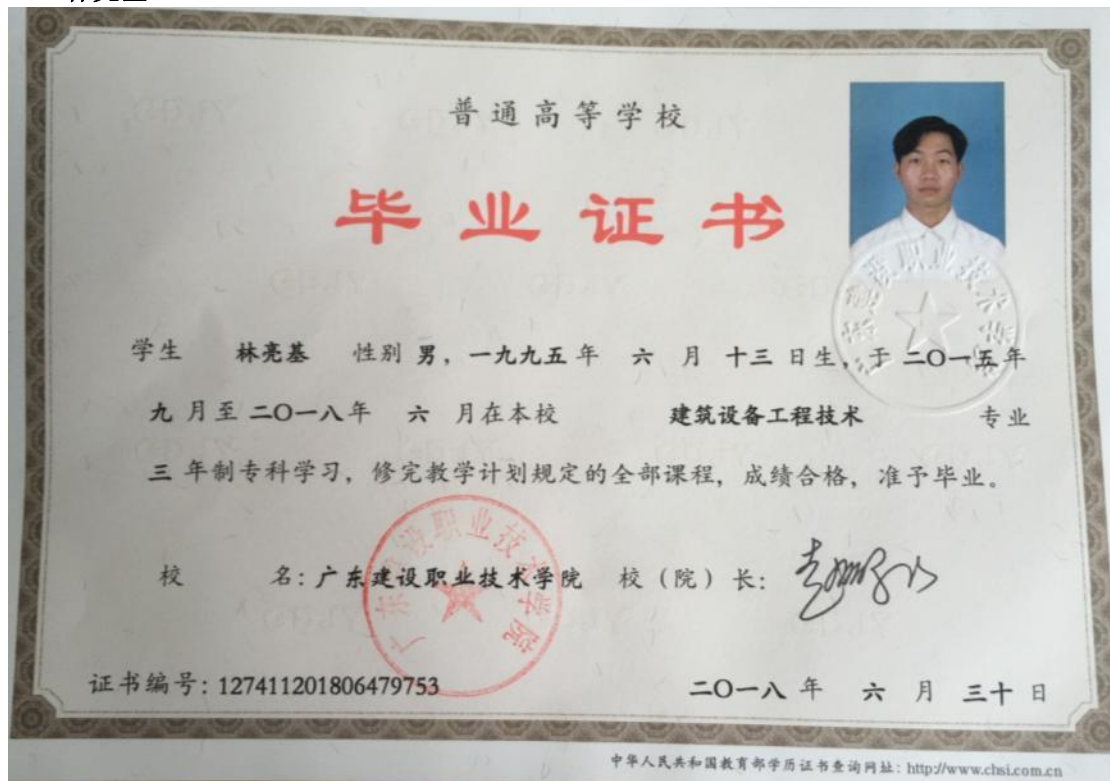 普通高等学校
毕业证书
学生 林亮基 性别 男，一九九五年 六 月 十三 日生，于 二〇一五年
九 月至 二〇一八年 六 月在本校 建筑设备工程技术 专业
三 年制专科学习，修完教学计划规定的全部课程，成绩合格，准予毕业。
广东建设职业技术学院
校 名：广东建设职业技术学院 校（院）长：
证书编号：127411201806479753 二〇一八 年 六 月 三十 日
中华人民共和国教育部学历证书查询网址：http://www.chsi.com.cn